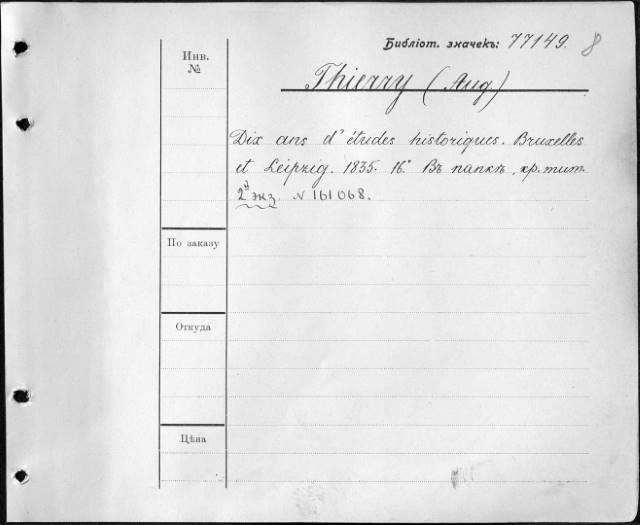 Библіот. значекъ: 77149. 8
Инв.
№
Thierry (Aug)
Dix ans d'études historiques. Bruxelles
et Leipzig. 1835. 16° Въ папкѣ, хр. тит.
2й экз. N 161068.
По заказу
Откуда
Цѣна